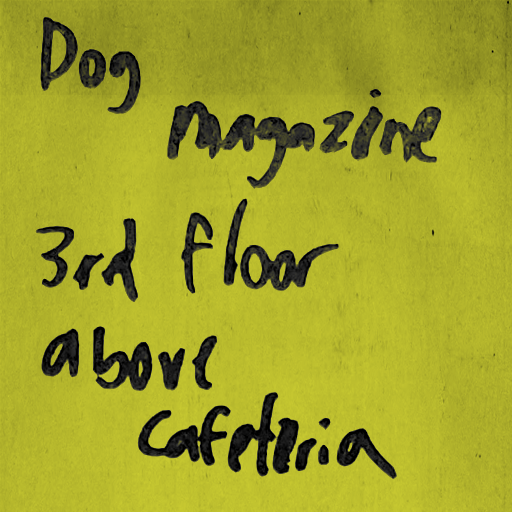 Dog
magazine
3rd floor
above
cafeteria